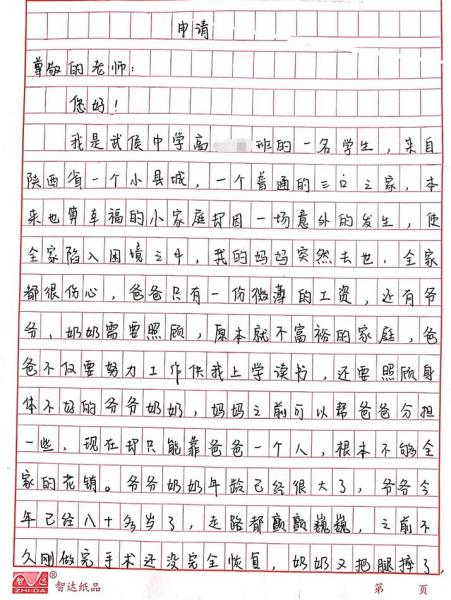 申请
尊敬的老师:
您好!
我是武侯中学高 班的一名学生,来自
陕西省一个小县城,一个普通的三口之家,本
来也算幸福的小家庭却因一场意外的发生,使
全家陷入困境之中,我的妈妈突然去世,全家
都很伤心,爸爸只有一份微薄的工资,还有爷
爷、奶奶需要照顾,原本就不富裕的家庭,爸
爸不仅要努力工作供我上学读书,还要照顾身
体不好的爷爷奶奶,妈妈之前可以帮爸爸分担
一些,现在却只能靠爸爸一个人,根本不够全
家的花销。爷爷奶奶年龄已经很大了,爷爷今
年已经八十多岁了,走路都颤颤巍巍,之前不
久刚做完手术还没完全恢复,奶奶又把腿摔了,
智达 ZHI-DA ® 智达纸品 第 页